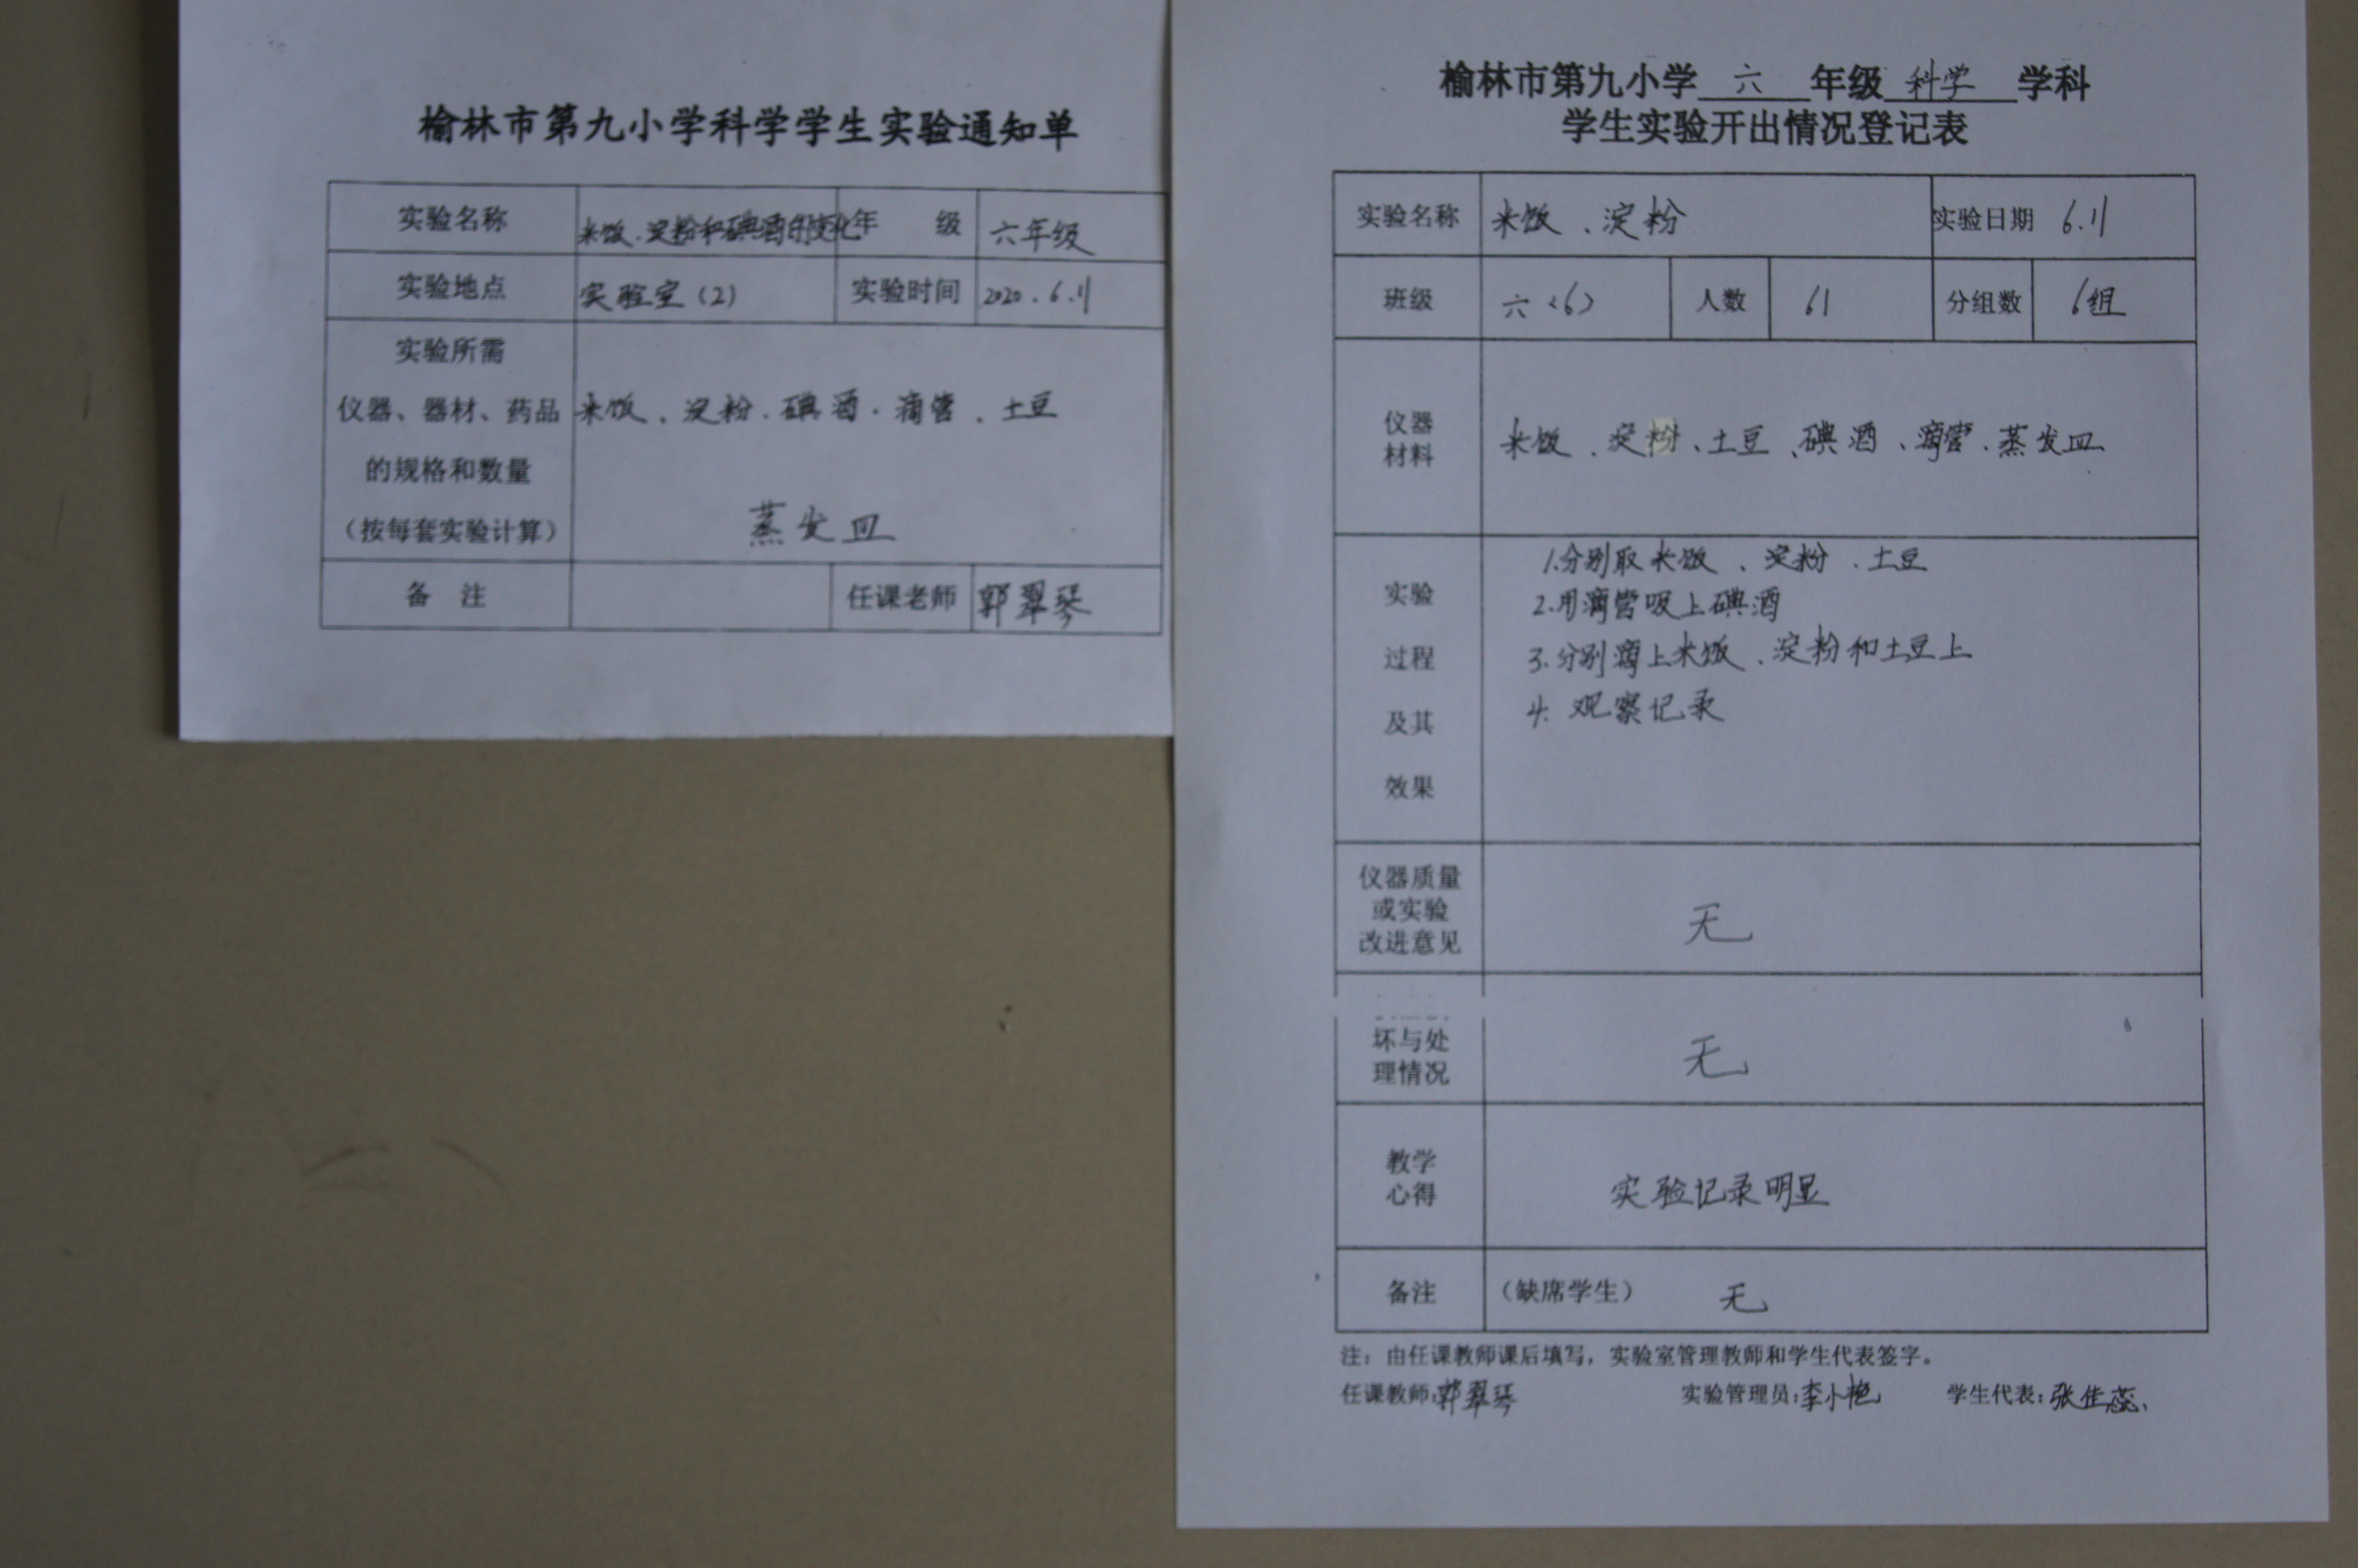 榆林市第九小学科学学生实验通知单
实验名称 米饭、淀粉和碘酒的变化 年 级 六年级
实验地点 实验室(2) 实验时间 2020.6.11
实验所需
仪器、器材、药品 米饭、淀粉、碘酒、滴管、土豆
的规格和数量
(按每套实验计算) 蒸发皿
备 注 任课老师 郭翠琴
榆林市第九小学 六 年级 科学 学科
学生实验开出情况登记表
实验名称 米饭、淀粉 实验日期 6.11
班级 六<6> 人数 61 分组数 6组
仪器
材料
米饭、淀粉、土豆、碘酒、滴管、蒸发皿
实验
过程
及其
效果
1.分别取米饭、淀粉、土豆
2.用滴管吸上碘酒
3.分别滴上米饭、淀粉和土豆上
4.观察记录
仪器质量
或实验
改进意见
无
坏与处
理情况
无
教学
心得
实验记录明显
备注 (缺席学生) 无
注:由任课教师课后填写,实验室管理教师和学生代表签字。
任课教师:郭翠琴 实验管理员:李小艳 学生代表:张佳蕊